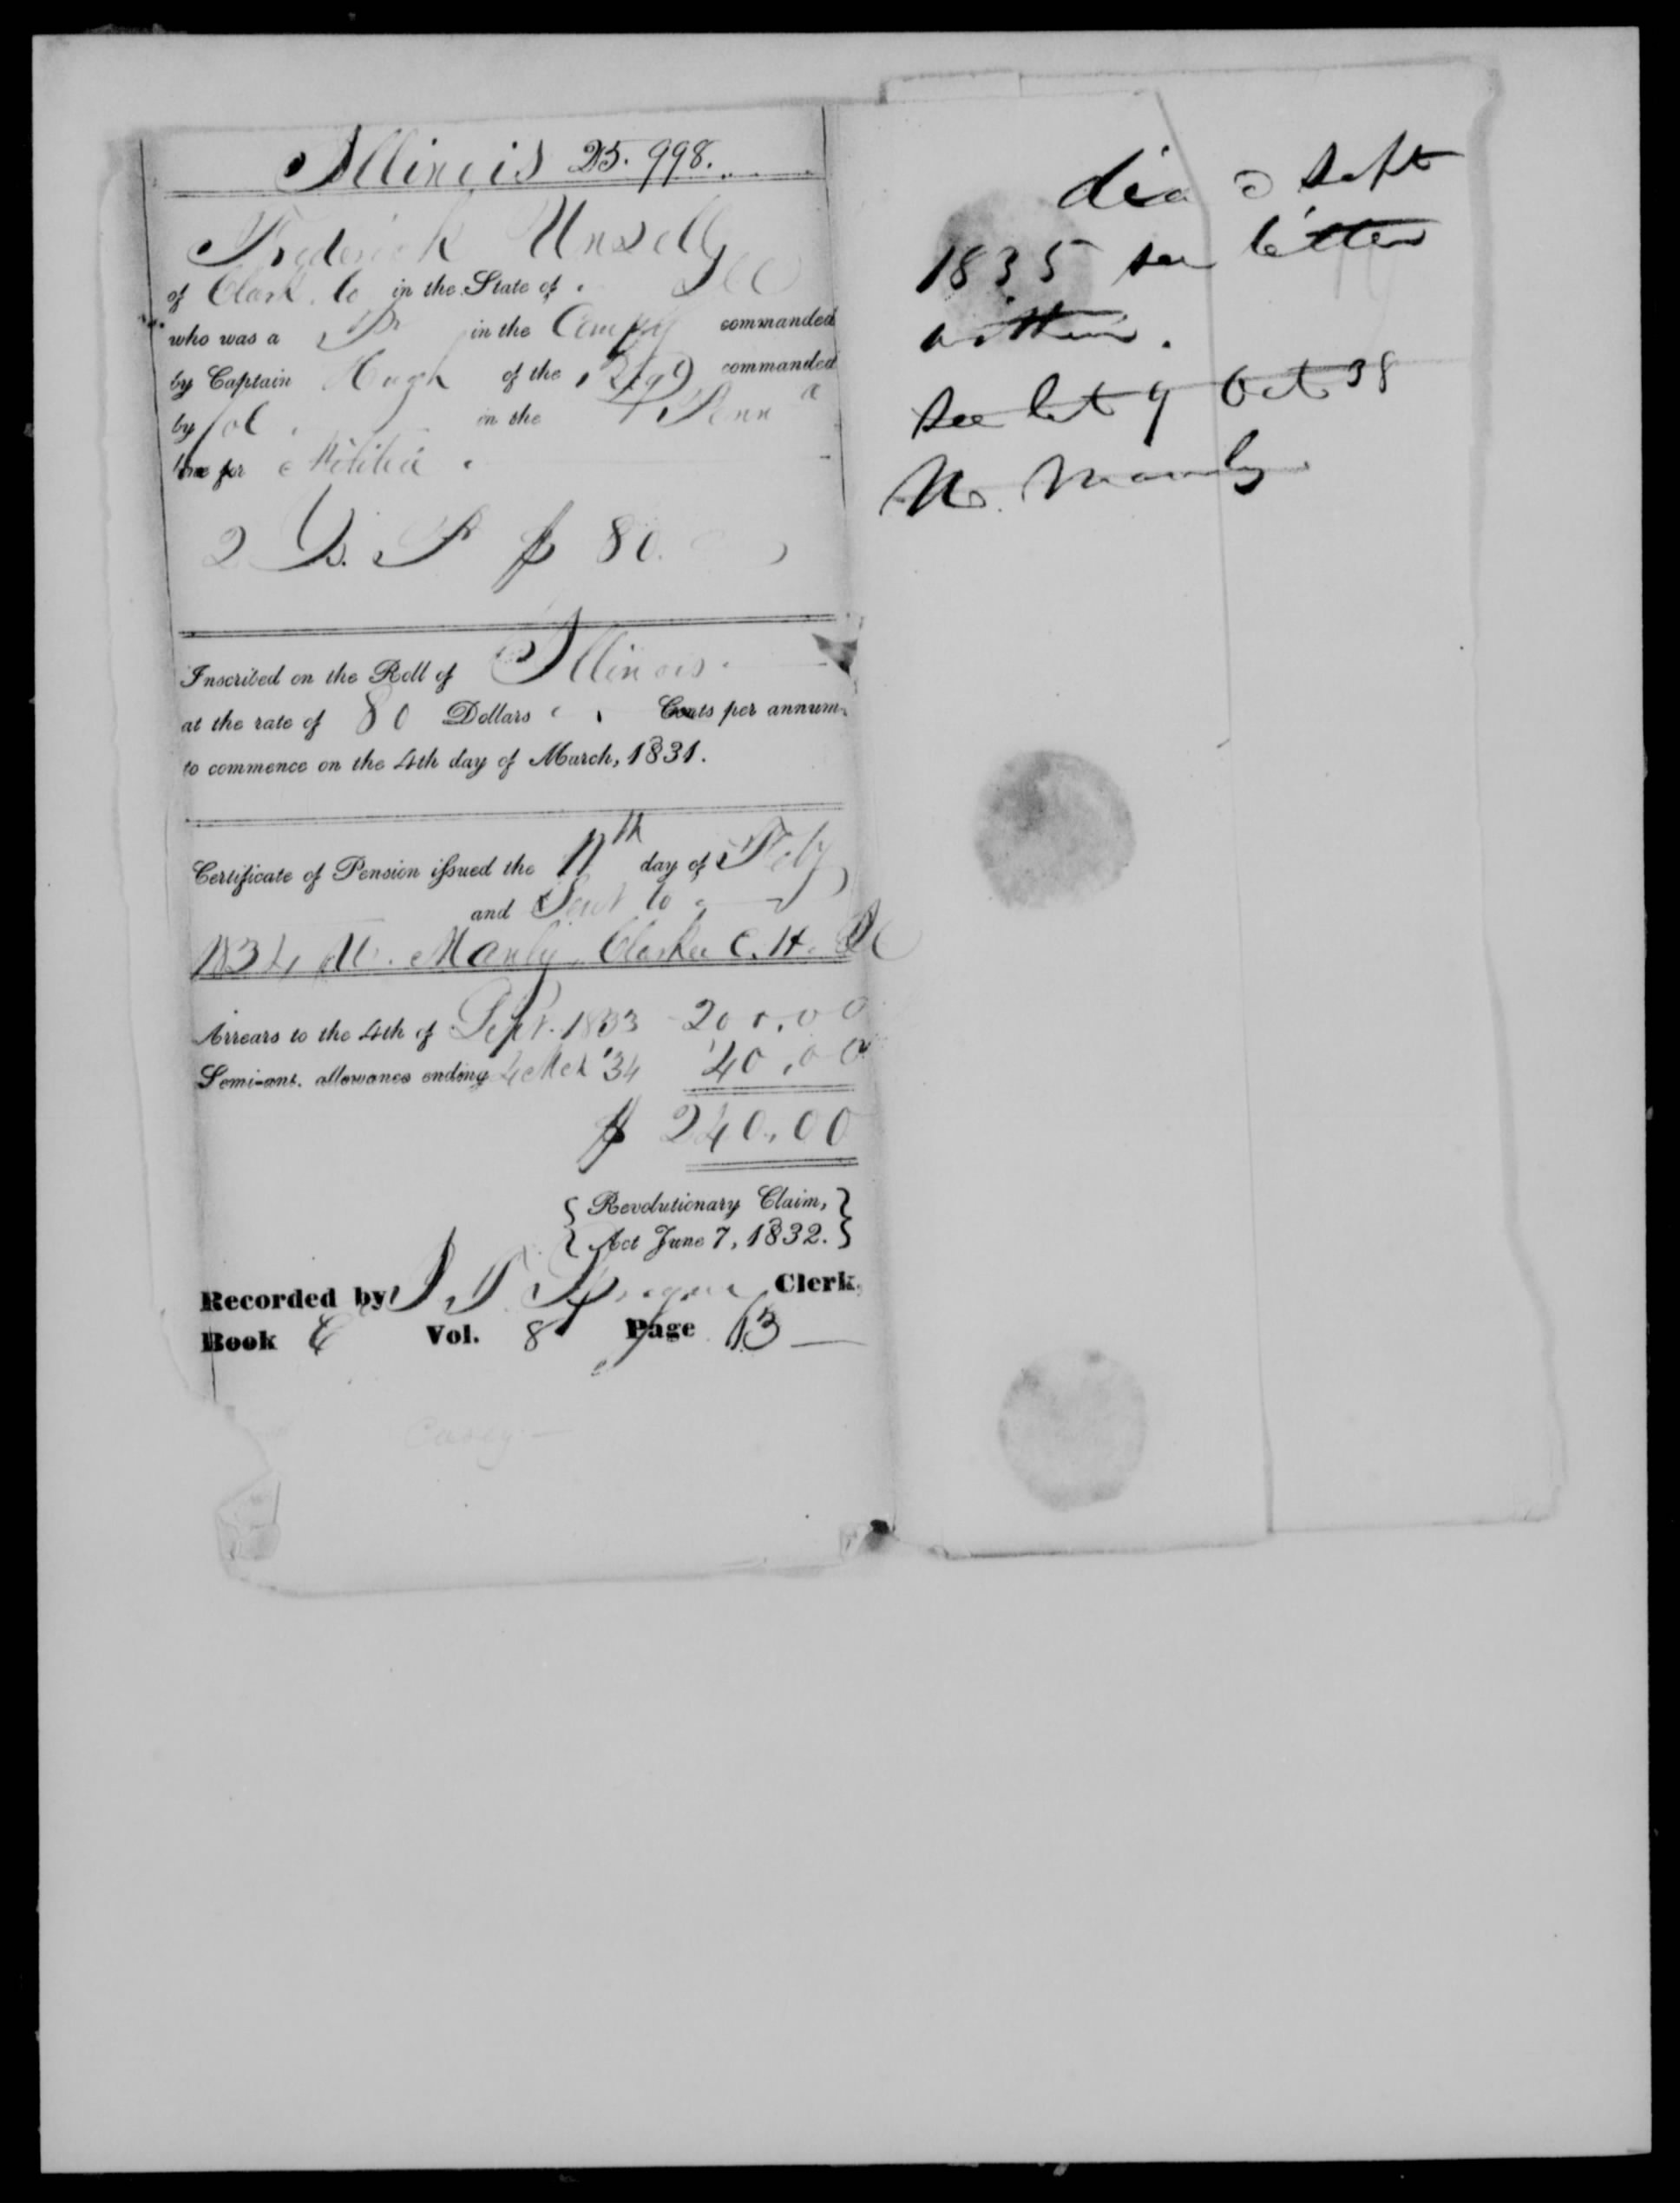 Illinois 25.998.
Frederick Unsell
of Clark Co in the State of Ill
who was a Pr in the Compy commanded
by Captain Hugh of the Regt commanded
by Col in the Penn a
line for Militia
2 Ys. Pr $ 80.
Inscribed on the Roll of Illinois
at the rate of 80 Dollars Cents per annum,
to commence on the 4th day of March, 1831.
Certificate of Pension issued the 11th day of Feby
and Sent to
1834 W. Manly Clarke C. H. Ill
Arrears to the 4th of Sept. 1833 200.00
Semi-anl. allowance ending 4 Mch '34 40.00
$ 240.00
{ Revolutionary Claim, }
{ Act June 7, 1832. }
Recorded by Clerk,
Book E Vol. 8 Page 13
Casey
died Sept
1835 see letter
within.
See let 9 Oct 38
W. Manly